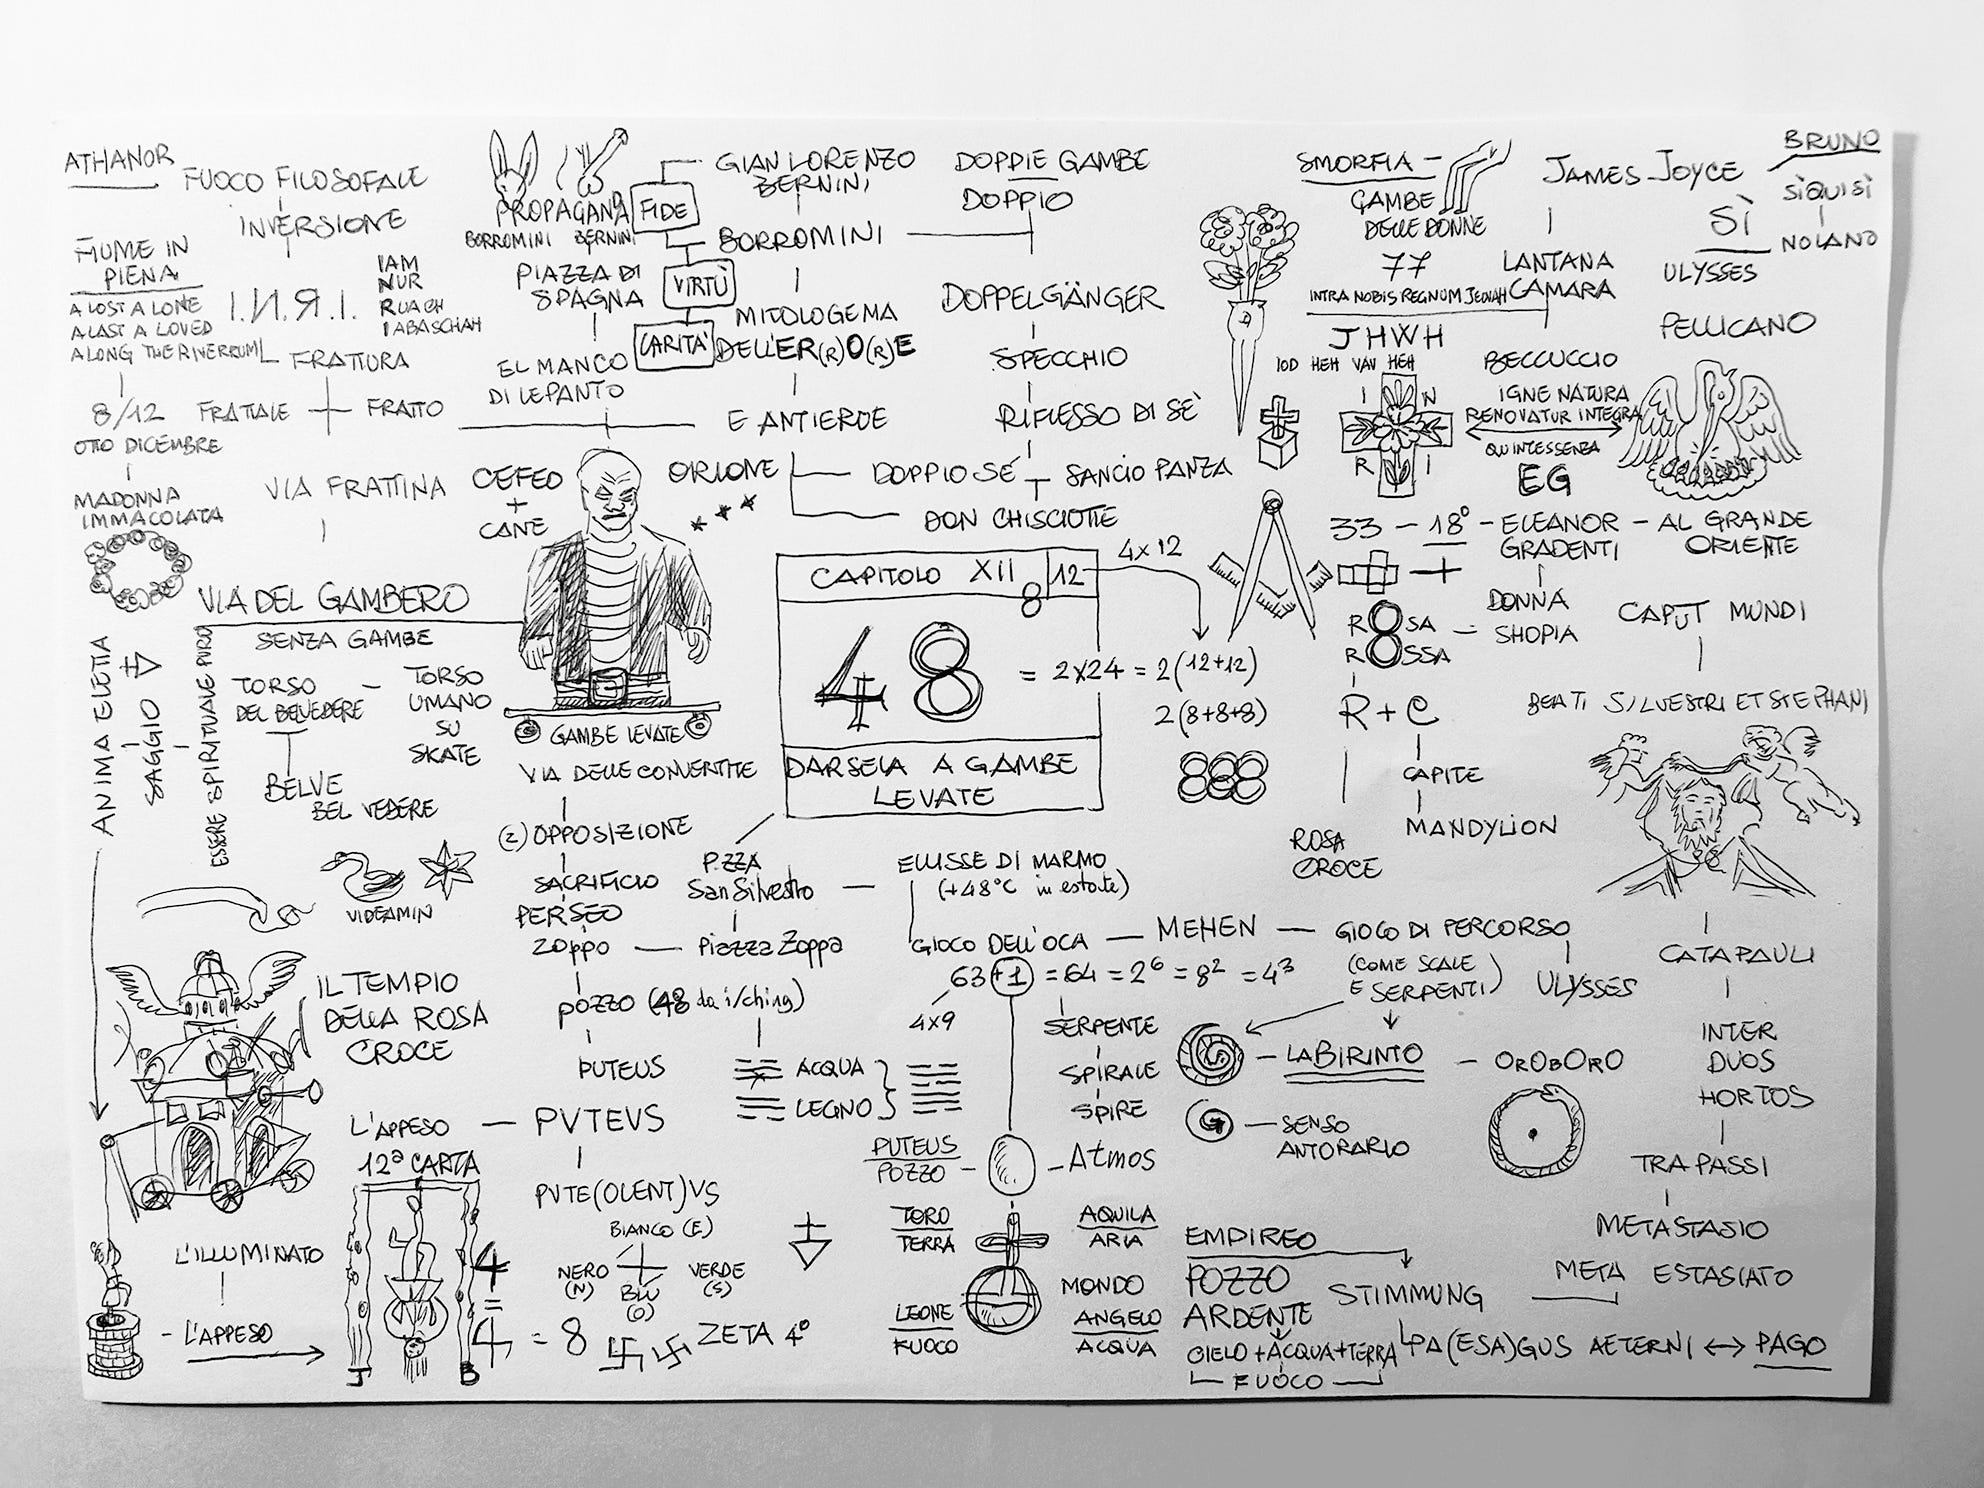 ATHANOR
FUOCO FILOSOFALE
INVERSIONE
FIUME IN
PIENA
A LOST A LONE
A LAST A LOVED
A LONG THE RIVERRUN
I.И.Я.I.
IAM
NUR
RUACH
IABASCHAH
FRATTURA
8/12
OTTO DICEMBRE
FRATTALE
FRATTO
MADONNA
IMMACOLATA
VIA FRATTINA
VIA DEL GAMBERO
SENZA GAMBE
TORSO
DEL BELVEDERE
TORSO
UMANO
SU
SKATE
BELVE
BEL VEDERE
ANIMA ELETTA
SAGGIO
ESSERE SPIRITUALE PURO
VIDEAMIN
IL TEMPIO
DELLA ROSA
CROCE
L'ILLUMINATO
L'APPESO
PROPAGANDA
FIDE
BORROMINI BERNINI
PIAZZA DI
SPAGNA
VIRTÙ
CARITA'
EL MANCO
DI LEPANTO
GIAN LORENZO
BERNINI
BORROMINI
MITOLOGEMA
DELL'ER(R)O(R)E
E ANTIEROE
DOPPIE GAMBE
DOPPIO
DOPPELGÄNGER
SPECCHIO
RIFLESSO DI SÈ
CEFEO
+
CANE
ORIONE
DOPPIO SÉ
SANCIO PANZA
DON CHISCIOTTE
GAMBE LEVATE
CAPITOLO XII
8
12
48
DARSELA A GAMBE
LEVATE
4x12
= 2x24 = 2(12+12)
2(8+8+8)
VIA DELLE CONVERTITE
(2) OPPOSIZIONE
SACRIFICIO
PERSEO
ZOPPO
P.ZZA
San Silvestro
Piazza Zoppa
pozzo (48 da i/ching)
PUTEUS
ACQUA
LEGNO
L'APPESO
12ª CARTA
PVTEVS
PVTE(OLENT)VS
J
B
4
=
4 = 8
BIANCO (E)
NERO
(N)
BLÙ
(O)
VERDE
(S)
ZETA 4°
ELLISSE DI MARMO
(+48°C in estate)
GIOCO DELL'OCA
MEHEN
GIOCO DI PERCORSO
(COME SCALE
E SERPENTI)
ULYSSES
63+1 = 64 = 2⁶ = 8² = 4³
4x9
SERPENTE
SPIRALE
SPIRE
LABIRINTO
OROBORO
SENSO
ANTORARIO
PUTEUS
POZZO
Atmos
TORO
TERRA
AQUILA
ARIA
MONDO
LEONE
FUOCO
ANGELO
ACQUA
EMPIREO
POZZO
ARDENTE
CIELO+ACQUA+TERRA
FUOCO
STIMMUNG
SMORFIA
GAMBE
DELLE DONNE
77
INTRA NOBIS REGNUM JEOVAH
JHWH
IOD HEH VAV HEH
I N
R I
JAMES JOYCE
LANTANA
CAMARA
BRUNO
SÌ
SÌQUISÌ
NOLANO
ULYSSES
PELLICANO
BECCUCCIO
IGNE NATURA
RENOVATUR INTEGRA
QUINTESSENZA
EG
33 - 18° - ELEANOR
GRADENTI
AL GRANDE
ORIENTE
DONNA
SHOPIA
ROSA
ROSSA
R + C
CAPITE
MANDYLION
ROSA
CROCE
CAPUT MUNDI
BEATI SILVESTRI ET STEPHANI
CATAPAULI
INTER
DUOS
HORTOS
TRAPASSI
METASTASIO
META ESTASIATO
PA(ESA)GUS AETERNI ↔ PAGO